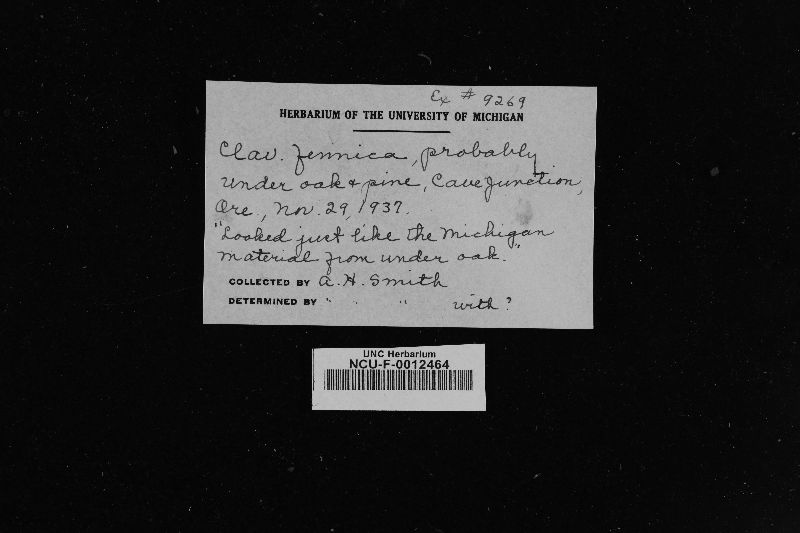 Ex # 9269
HERBARIUM OF THE UNIVERSITY OF MICHIGAN
Clav. fennica, probably
under oak & pine, Cave Junction,
Ore., Nov. 29, 1937.
"Looked just like the Michigan
material from under oak."
COLLECTED BY A. H. Smith
DETERMINED BY " " " with ?
UNC Herbarium
NCU-F-0012464